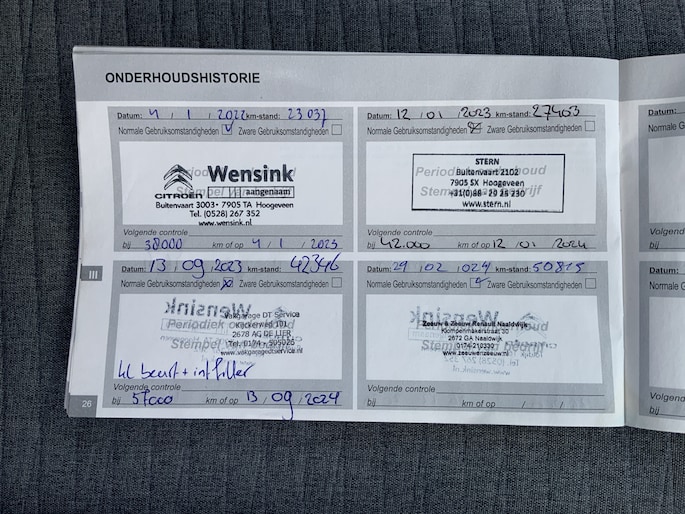 ONDERHOUDSHISTORIE
Datum: 4 / 1 / 2022 km-stand: 23037
Normale Gebruiksomstandigheden Zware Gebruiksomstandigheden
Periodiek onderhoud
Stempel van bedrijf
CITROËN
Wensink
aangenaam
Buitenvaart 3003 · 7905 TA Hoogeveen
Tel. (0528) 267 352
www.wensink.nl
Volgende controle
bij 38000 km of op 4 / 1 / 2023
Datum: 12 / 01 / 2023 km-stand: 27403
Normale Gebruiksomstandigheden Zware Gebruiksomstandigheden
Periodiek onderhoud
Stempel van bedrijf
STERN
Buitenvaart 2102
7905 SX Hoogeveen
www.stern.nl
Volgende controle
bij 42.000 km of op 12 / 01 / 2024
III
Datum: 13 / 09 / 2023 km-stand: 42346
Normale Gebruiksomstandigheden Zware Gebruiksomstandigheden
Periodiek onderhoud
Stempel van bedrijf
Vakgarage DT Service
2678 AC DE LIER
www.vakgaragedtservice.nl
kl beurt + int filter
Volgende controle
bij 57000 km of op 13 / 09 / 2024
Datum: 29 / 02 / 024 km-stand: 50815
Normale Gebruiksomstandigheden Zware Gebruiksomstandigheden
Periodiek onderhoud
Stempel van bedrijf
Zeeuw & Zeeuw Renault Naaldwijk
Klompenmakerstraat 30
2672 GA Naaldwijk
0174-210330
www.zeeuwenzeeuw.nl
Volgende controle
bij km of op / /
26
Datum:
Normale G
Volgende
bij
Datum:
Normale Ge
Volgend
bij